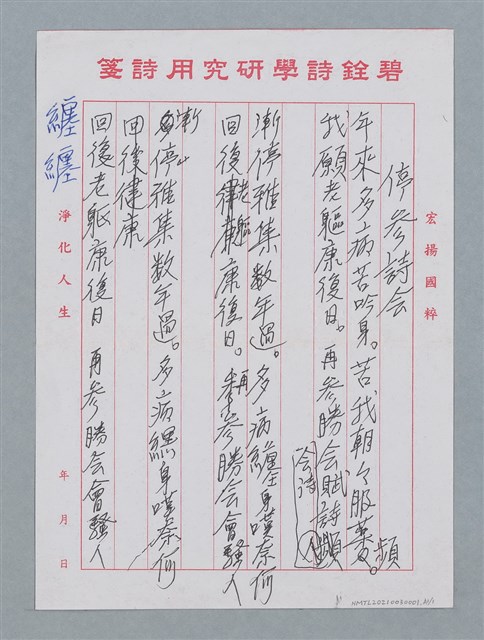 碧銓詩學研究用詩箋
宏揚國粹
停参詩会
年來多病苦吟身。苦我朝々服薬頻。
我願老軀康復日。再参勝会賦詩
会詩人
漸停雅集数年過。多病纏身嘆奈何
回復老軀康復日。再参勝会會騷人
漸停雅集数年過。多病纏身嘆奈何
回後健康
回復老軀康復日 再参勝会會騷人
淨化人生
年月日
纏纏